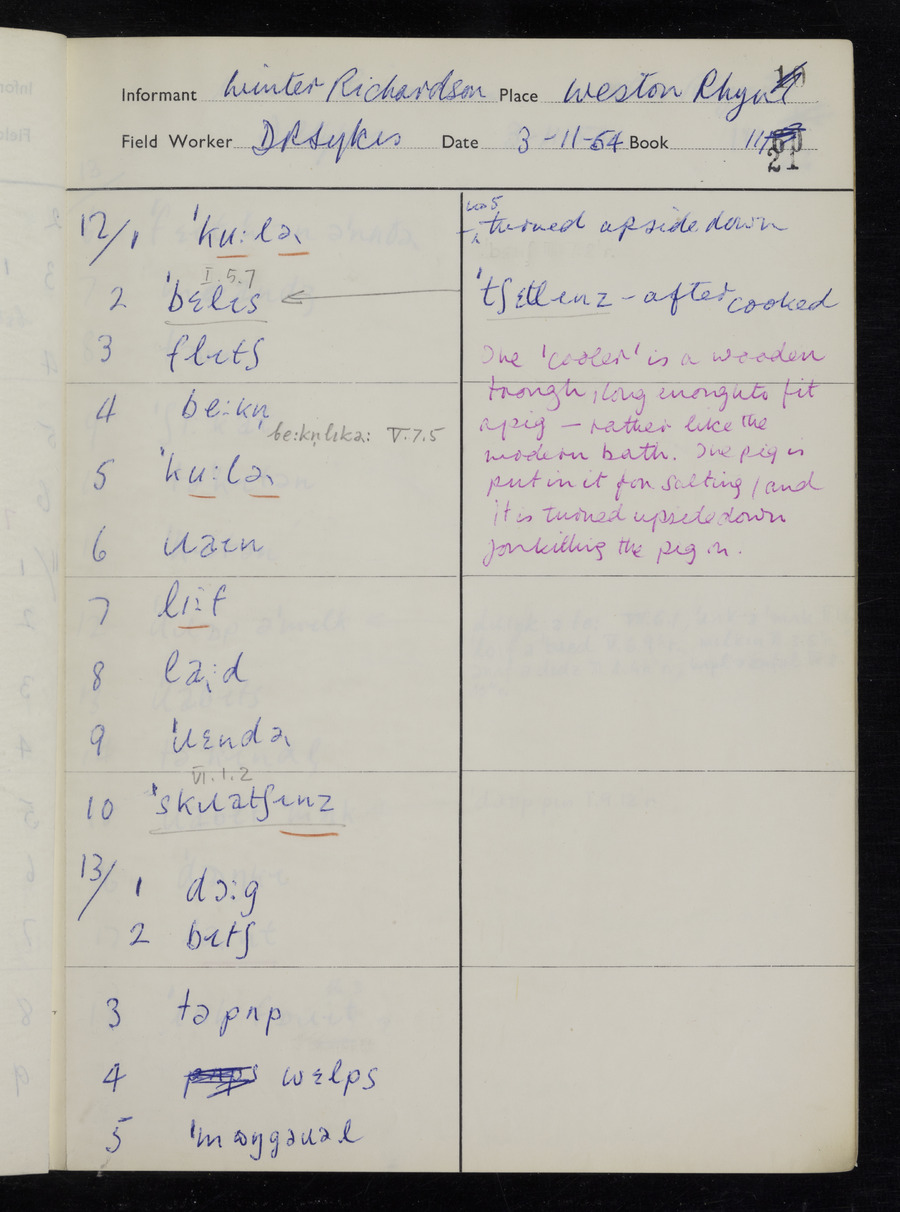 Informant Winter Richardson Place Weston Rhyn
Field Worker D R Sykes Date 3-11-54 Book
21
12/1 ˈku:lə turned upside down
I.5.7
2 ˈbɛlɪs ˈtʃɛtlɪnz - after cooked
3 flɪtʃ
The 'cooler' is a wooden
trough, long enough to fit
4 be:kn̩
a pig — rather like the
be:kn̩lɪkə: V.7.5
modern bath. The pig is
5 ˈku:lə
put in it for salting, and
it is turned upside down
6 ɹaɪn
for killing the pig on.
7 li:f
8 la:d
9 ˈɹɛndə
VI.1.2
10 ˈskɹatʃɪnz
13/1 dɔ:g
2 bɪtʃ
3 tə pʌp
4 wɛlps
5 ˈmɒŋgɹəl